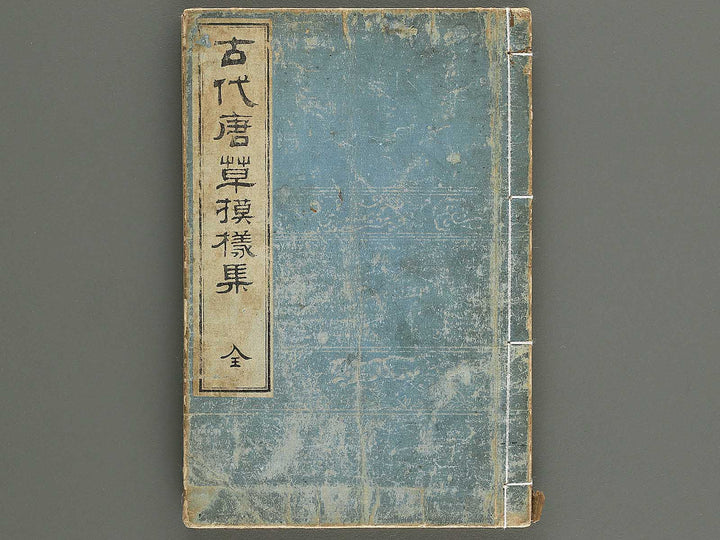 古代唐草摸樣集 全